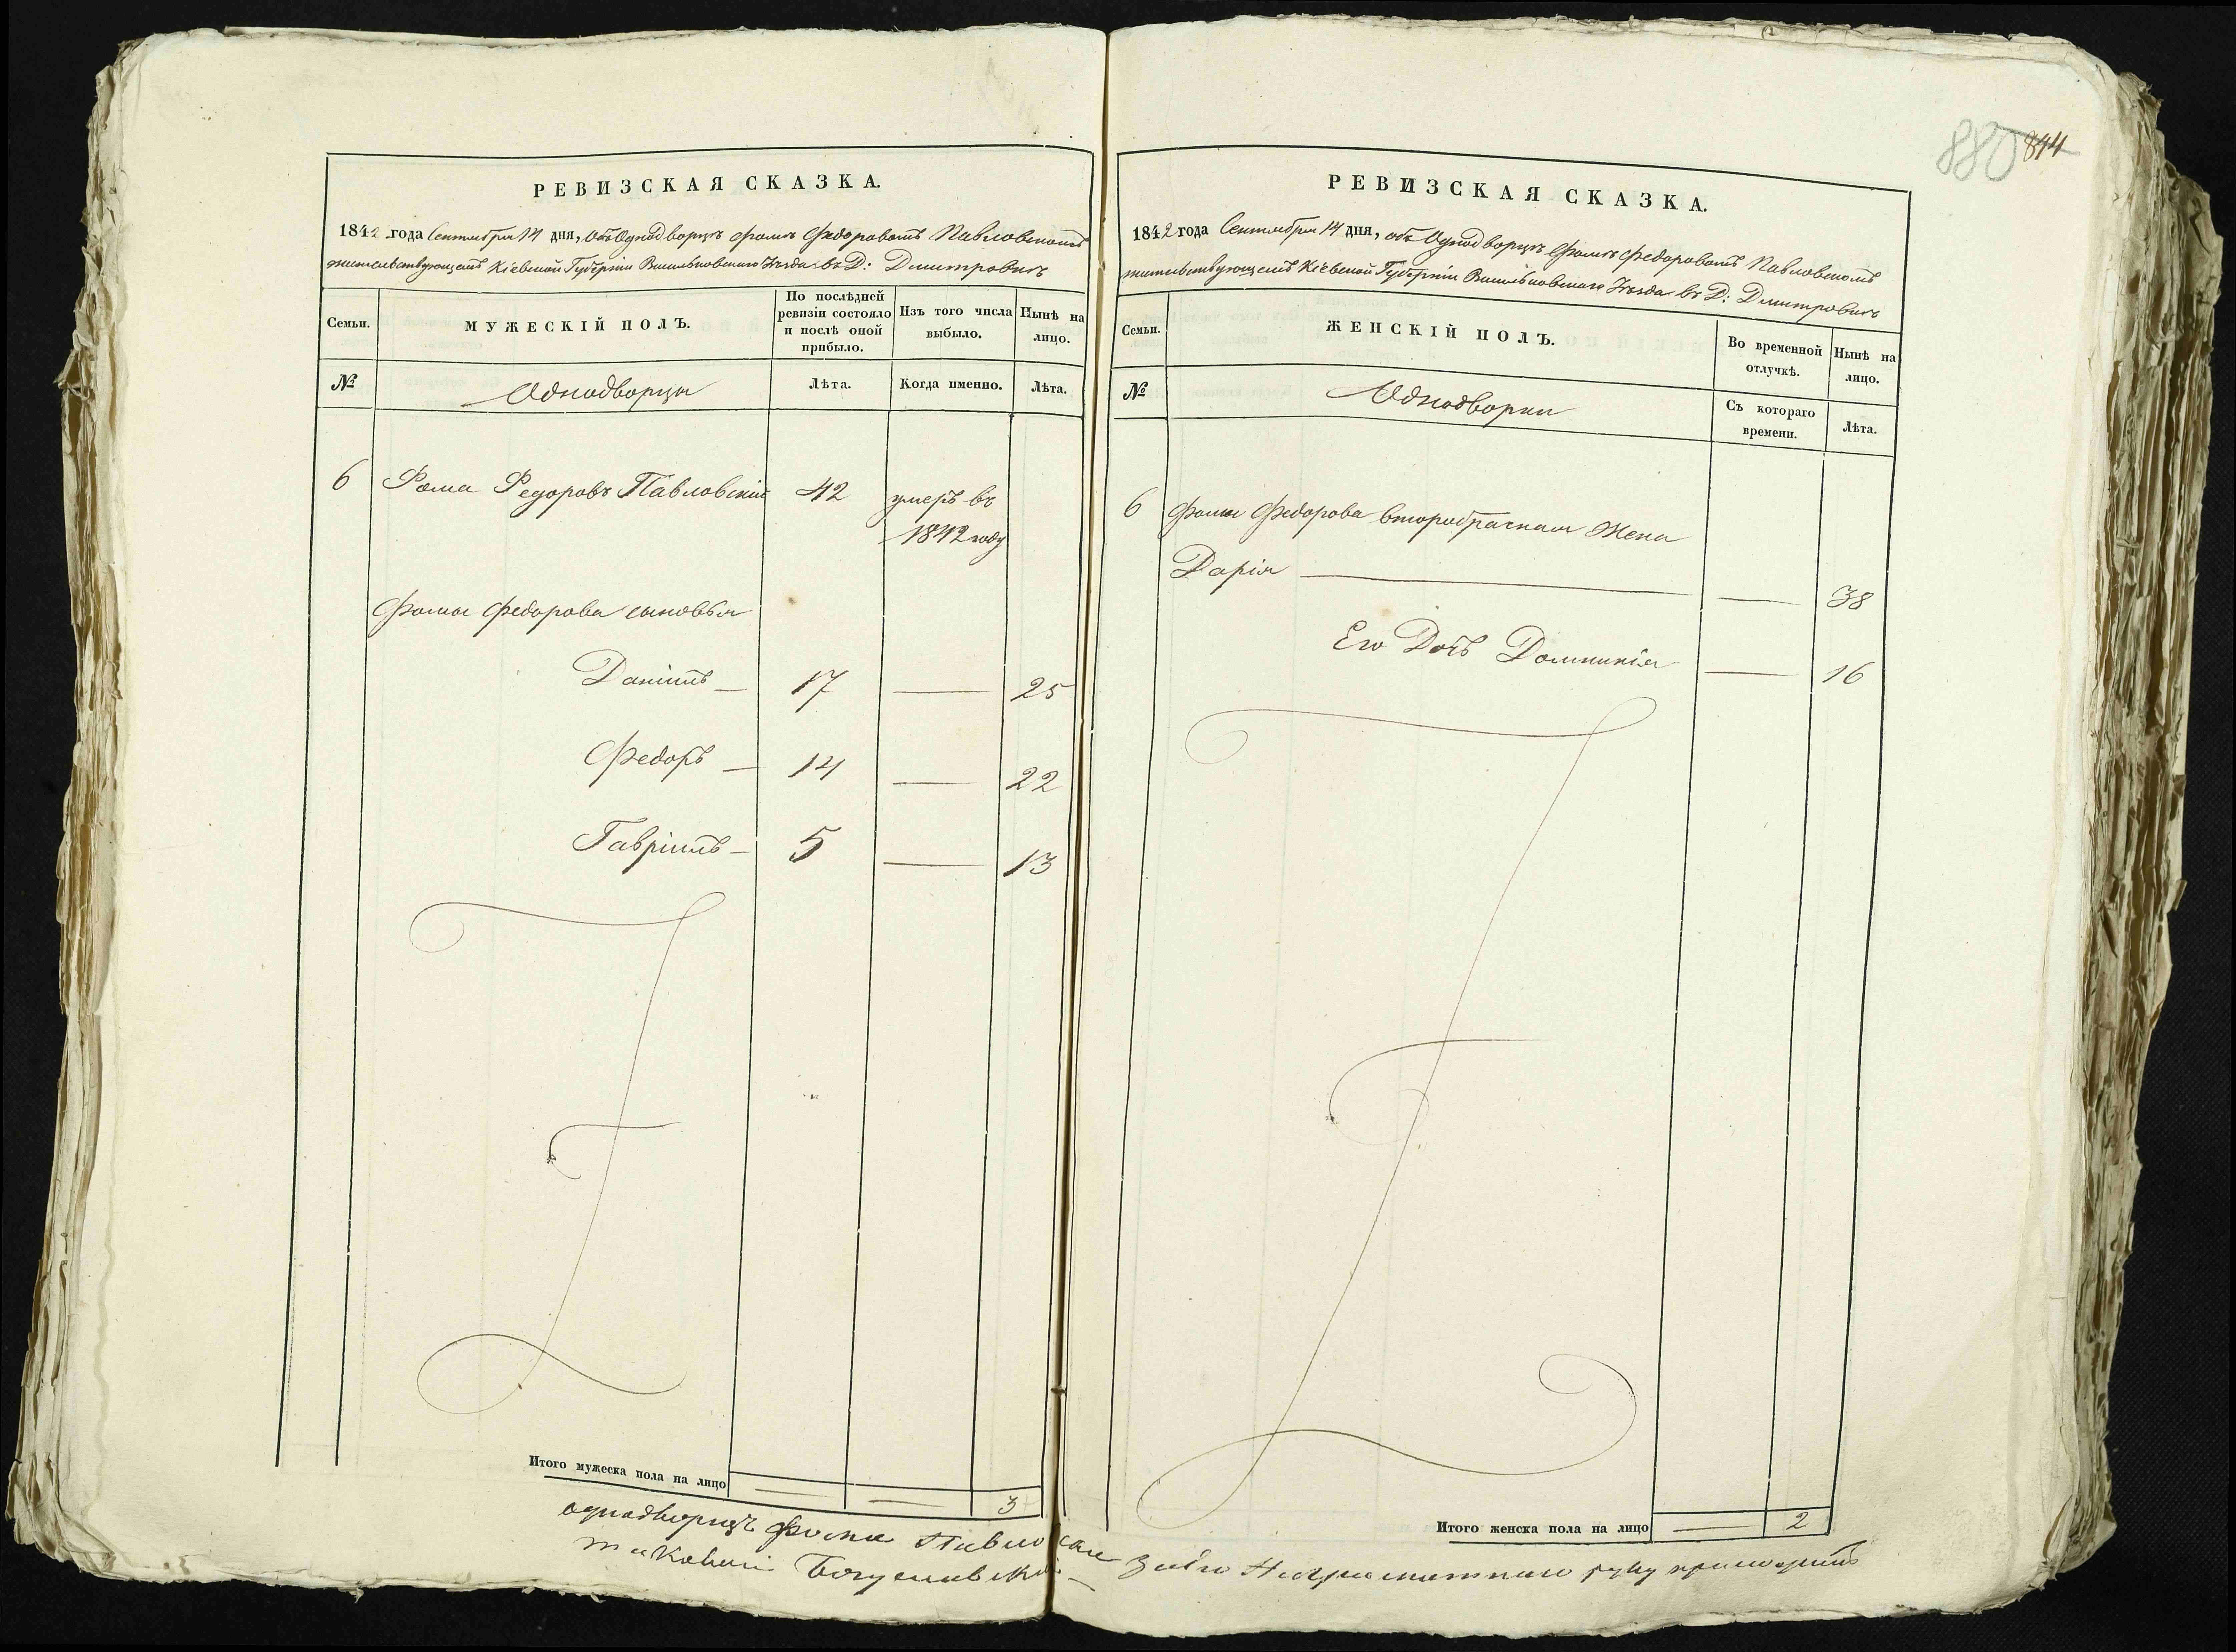 РЕВИЗСКАЯ СКАЗКА.
1842 года Сентября 14 дня, объ Однодворцѣ Фомѣ Федоровомъ Павловскомъ
жительствующемъ Кіевской Губерніи Васильковскаго Уѣзда въ Д: Дмитровкѣ
Семьи.
МУЖЕСКІЙ ПОЛЪ.
По послѣдней ревизіи состояло и послѣ оной прибыло.
Изъ того числа выбыло.
Нынѣ на лицо.
№
Однодворцы
Лѣта.
Когда именно.
Лѣта.
6 Фома Федоровъ Павловскій 42 умеръ въ
1842 году
Фомы Федорова сыновья
Даніилъ — 17 — 25
Федоръ — 14 — 22
Гавріилъ — 5 — 13
Итого мужеска пола на лицо — — 3
880 844
РЕВИЗСКАЯ СКАЗКА.
1842 года Сентября 14 дня, объ Однодворцѣ Фомѣ Федоровомъ Павловскомъ
жительствующемъ Кіевской Губерніи Васильковскаго Уѣзда въ Д: Дмитровкѣ
Семьи.
ЖЕНСКІЙ ПОЛЪ.
Во временной отлучкѣ.
Нынѣ на лицо.
№
Однодворки
Съ котораго времени.
Лѣта.
6 Фомы Федорова второбрачная Жена
Дарія — — 38
Его Дочь Домникія — 16
Итого женска пола на лицо — 2
однодворецъ Фома Павловскій за него Неграмотнаго руку приложилъ
таковый Богуславскій